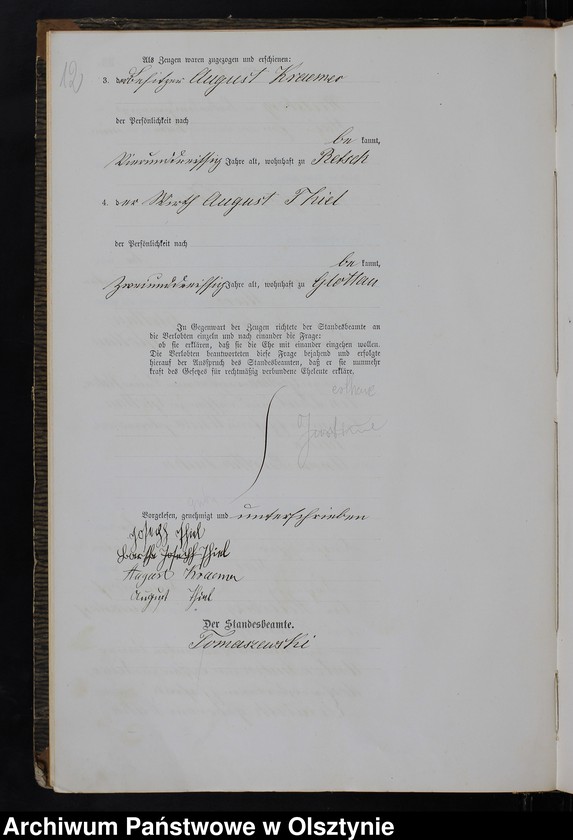 12
Als Zeugen waren zugezogen und erschienen:
3. der Besitzer August Kraemer
der Persönlichkeit nach
be kannt,
Vierunddreissig Jahre alt, wohnhaft zu Retsch
4. der Wirth August Thiel
der Persönlichkeit nach
be kannt,
Zweiunddreissig Jahre alt, wohnhaft zu Glottau
In Gegenwart der Zeugen richtete der Standesbeamte an
die Verlobten einzeln und nach einander die Frage:
ob sie erklären, daß sie die Ehe mit einander eingehen wollen.
Die Verlobten beantworteten diese Frage bejahend und erfolgte
hierauf der Ausspruch des Standesbeamten, daß er sie nunmehr
kraft des Gesetzes für rechtmäßig verbundene Eheleute erkläre.
Vorgelesen, genehmigt und unterschrieben
Joseph Thiel
Thiel
August Kraemer
August Thiel
Der Standesbeamte.
Tomaszewski
Archiwum Państwowe w Olsztynie